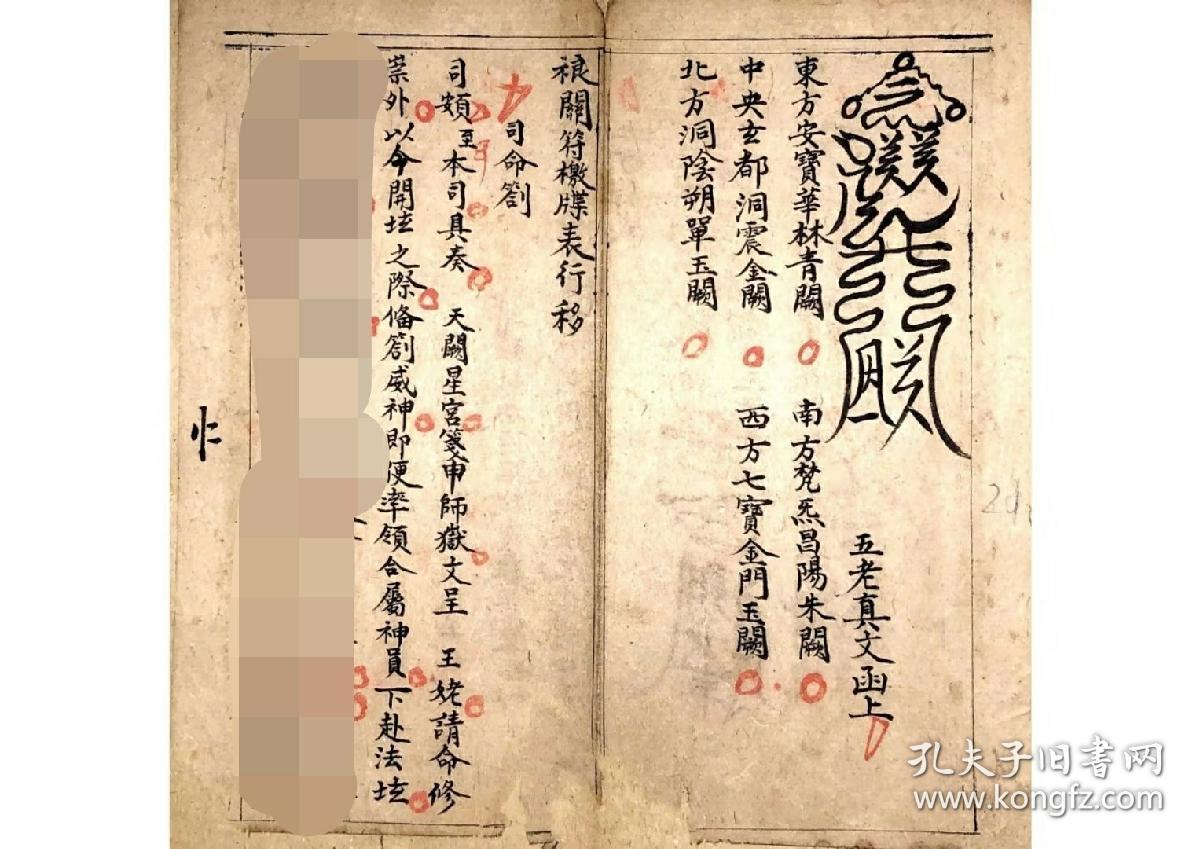 五老真文函上
東方安寶華林青闕 南方梵炁昌陽朱闕
中央玄都洞震金闕 西方七寶金門玉闕
北方洞陰朔單玉闕
禳關符檄牒表行移
司命劄
司頖至本司具奏 天闕星宮箋申師嶽文呈 王姥請命修
崇外以今開坛之際俻劄威神即便率領合屬神員下赴法坛
孔夫子旧书网
www.kongfz.com